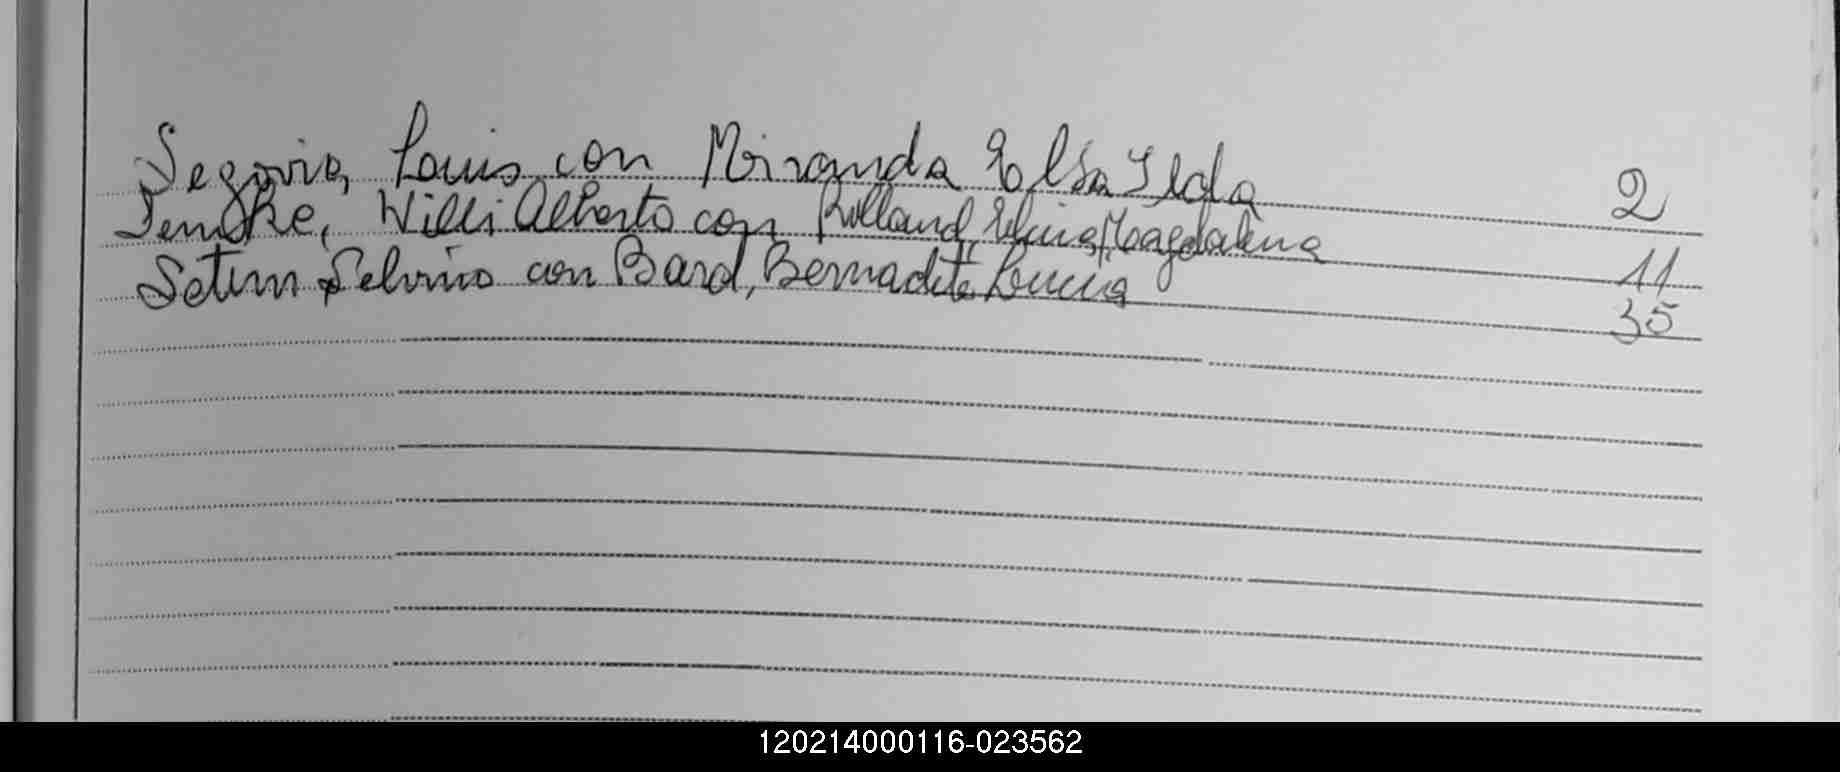 Segovia, Louis con Miranda Elsa Ilda 2
Willi Alberto con Magdalena 11
Setim Selvino con Bard, Bernadete Lucia 35
120214000116-023562